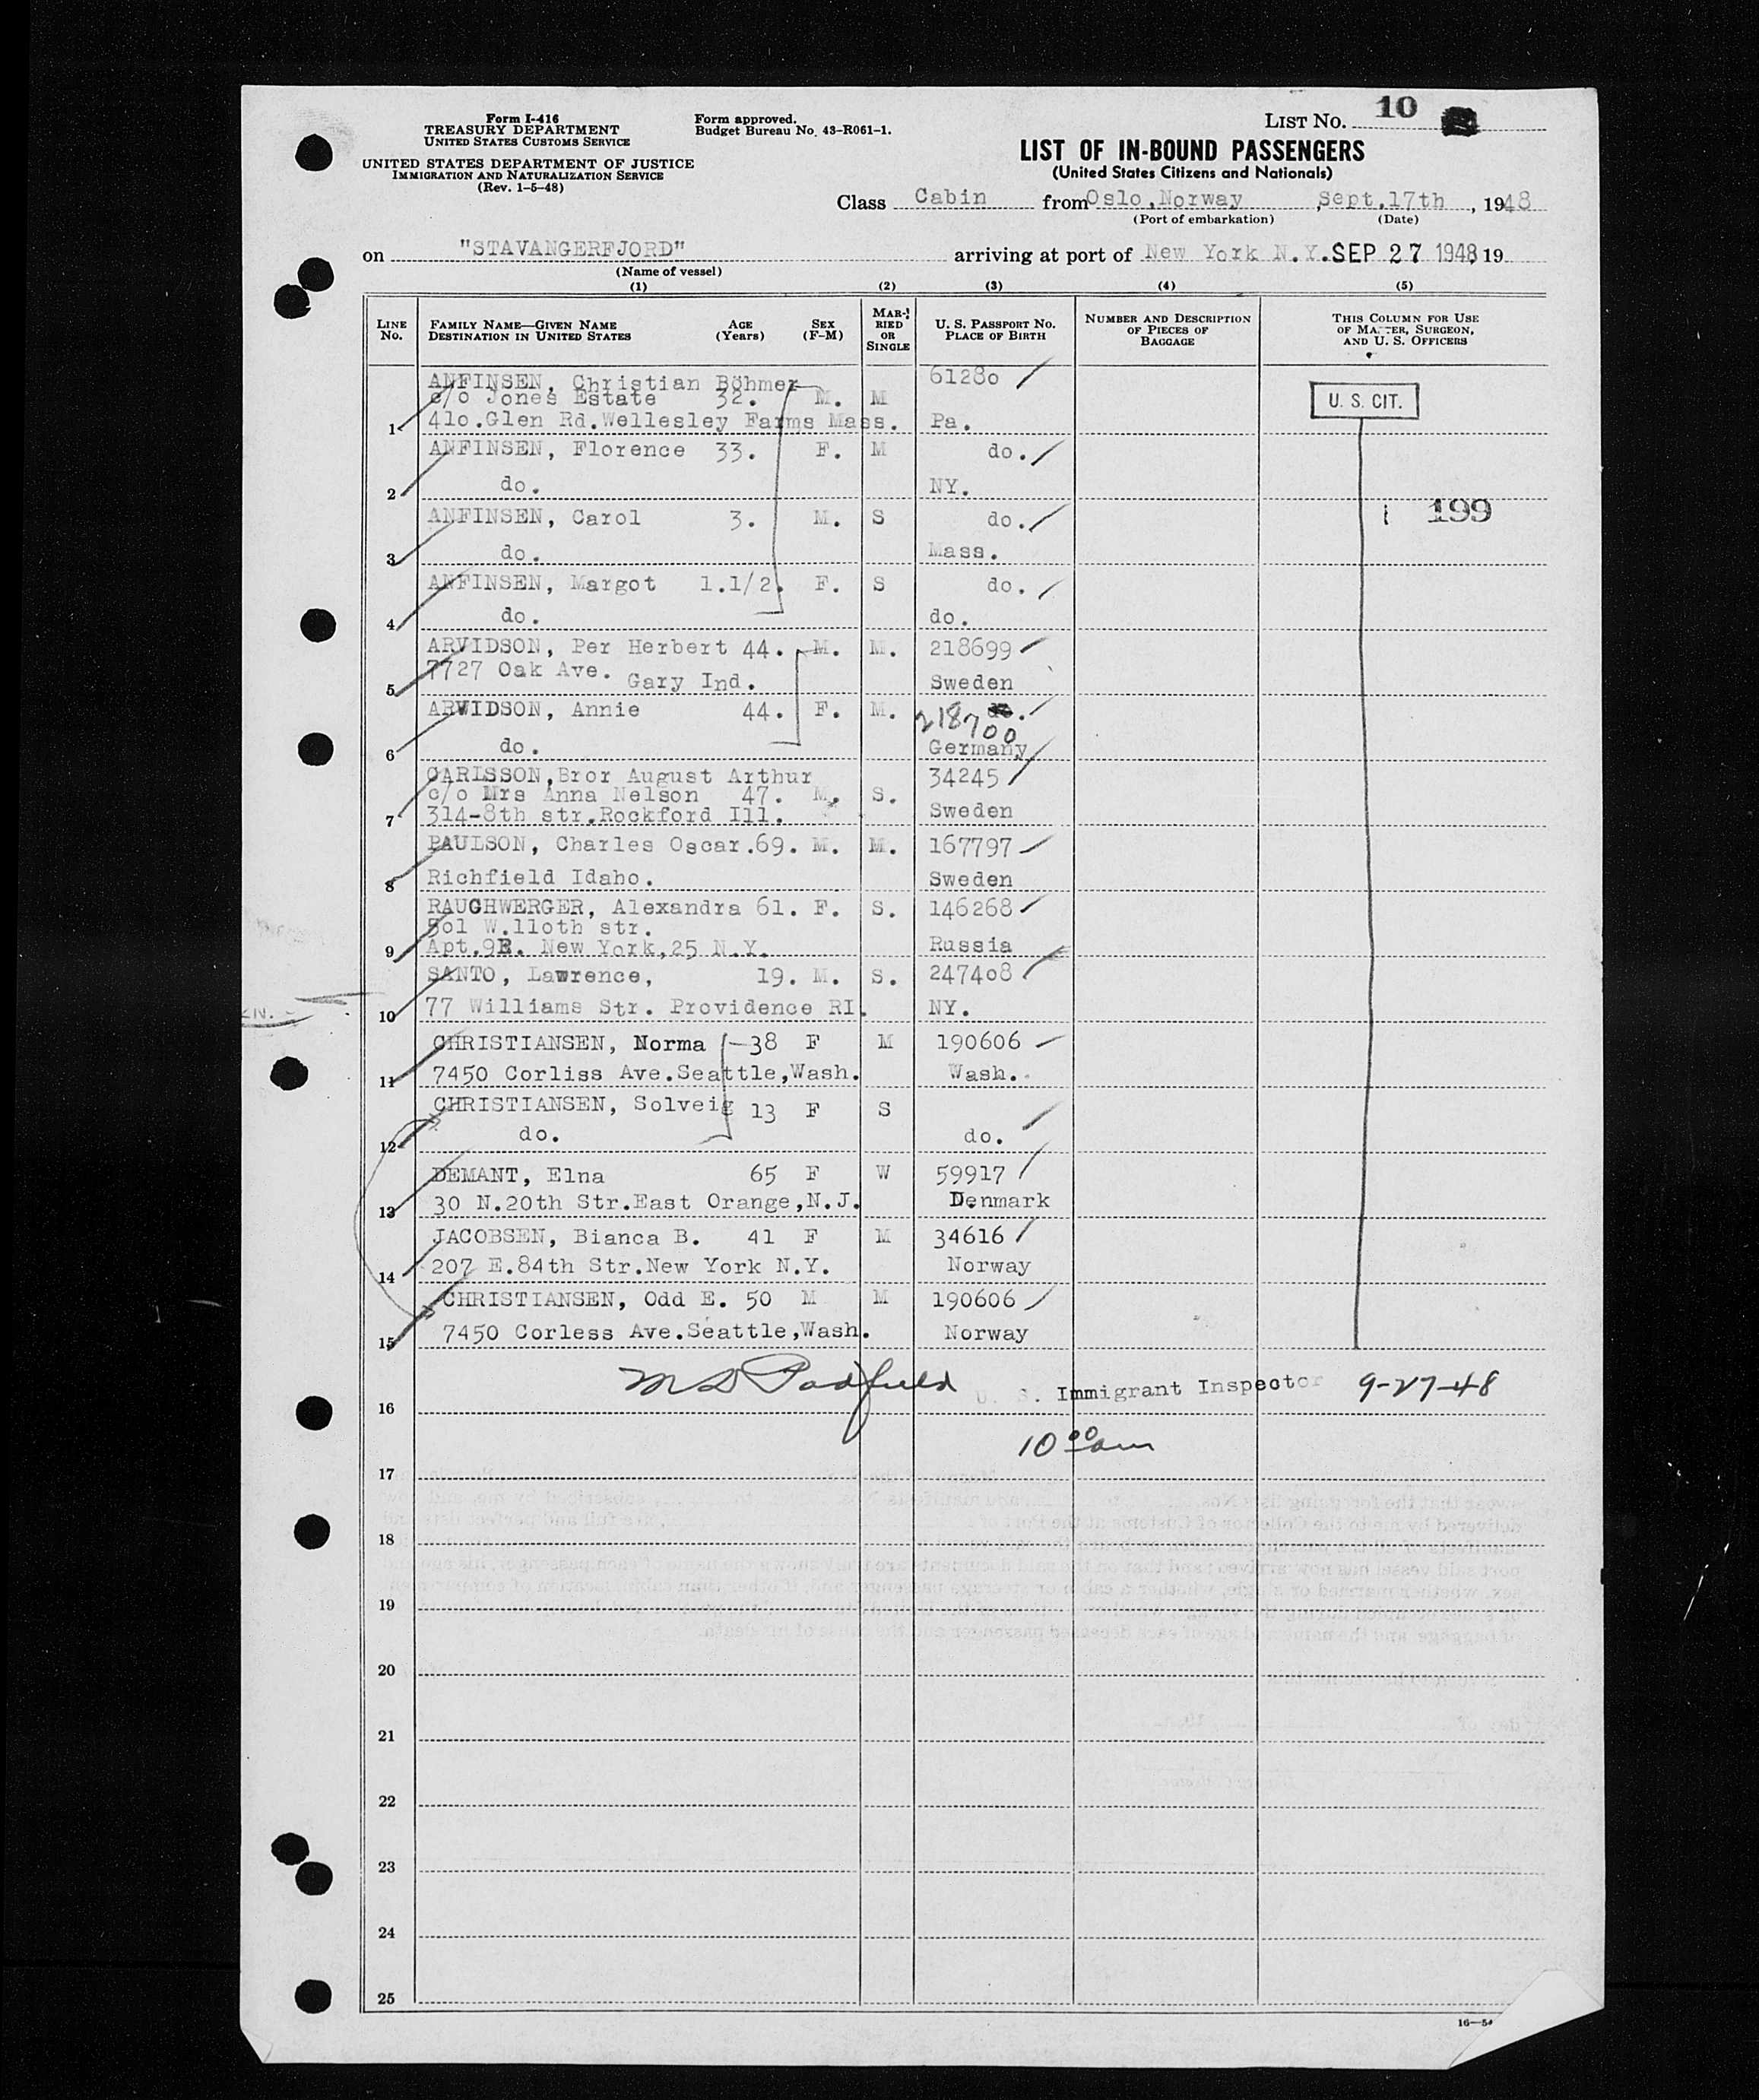 Form I-416
TREASURY DEPARTMENT
UNITED STATES CUSTOMS SERVICE
UNITED STATES DEPARTMENT OF JUSTICE
IMMIGRATION AND NATURALIZATION SERVICE
(Rev. 1-5-48)
Form approved.
Budget Bureau No. 43-R061-1.
LIST NO. 10
LIST OF IN-BOUND PASSENGERS
(United States Citizens and Nationals)
Class Cabin from Oslo, Norway , Sept. 17th , 1948
(Port of embarkation) (Date)
on "STAVANGERFJORD" arriving at port of New York N.Y. SEP 27 1948, 19
(Name of vessel)
(1) (2) (3) (4) (5)
LINE NO. FAMILY NAME—GIVEN NAME DESTINATION IN UNITED STATES AGE (Years) SEX (F-M) MARRIED OR SINGLE U. S. PASSPORT NO. PLACE OF BIRTH NUMBER AND DESCRIPTION OF PIECES OF BAGGAGE THIS COLUMN FOR USE OF MASTER, SURGEON, AND U. S. OFFICERS
ANFINSEN, Christian Böhmer 6128o
c/o Jones Estate 32. M. M U. S. CIT.
1 41o.Glen Rd.Wellesley Farms Mass. Pa.
ANFINSEN, Florence 33. F. M do.
2 do. NY.
ANFINSEN, Carol 3. M. S do. 199
3 do. Mass.
ANFINSEN, Margot 1.1/2. F. S do.
4 do. do.
ARVIDSON, Per Herbert 44. M. M. 218699
7727 Oak Ave. Gary Ind.
5 Sweden
ARVIDSON, Annie 44. F. M. 218700
6 do. Germany
CARISSON,Bror August Arthur 34245
c/o Mrs Anna Nelson 47. M. S.
7 314-8th str.Rockford Ill. Sweden
PAULSON, Charles Oscar.69. M. M. 167797
8 Richfield Idaho. Sweden
RAUCHWERGER, Alexandra 61. F. S. 146268
5o1 W.110th str.
9 Apt.9E. New York,25 N.Y. Russia
SANTO, Lawrence, 19. M. S. 2474o8
10 77 Williams Str. Providence RI. NY.
CHRISTIANSEN, Norma 38 F M 190606
11 7450 Corliss Ave.Seattle,Wash. Wash.
CHRISTIANSEN, Solveig 13 F S
12 do. do.
DEMANT, Elna 65 F W 59917
13 30 N.20th Str.East Orange,N.J. Denmark
JACOBSEN, Bianca B. 41 F M 34616
14 207 E.84th Str.New York N.Y. Norway
CHRISTIANSEN, Odd E. 50 M M 190606
15 7450 Corless Ave.Seattle,Wash. Norway
M D Padfield U. S. Immigrant Inspector 9-27-48
16
10 00 am
17
18
19
20
21
22
23
24
25